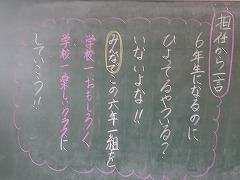 担任から一言
6年生になるのに
ひよってるやつる?
いないよな!!
みなでこの六年一組を
学校一おもしろく
学校一楽しいクラスに
していこう!!